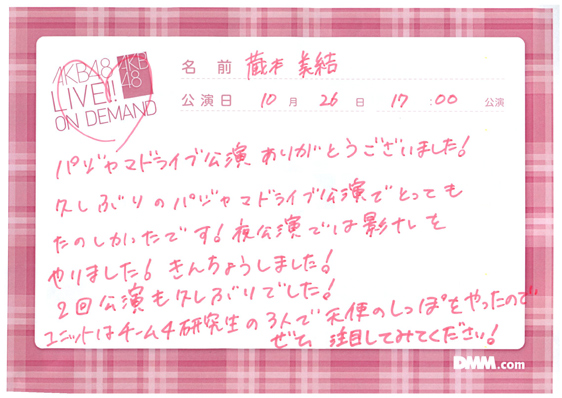 AKB48
LIVE!!
ON DEMAND
AKB
48
名 前 蔵本 美結
公演日 10 月 26 日 17 : 00 公演
パジャマドライブ公演 ありがとうございました!
久しぶりのパジャマドライブ公演でとっても
たのしかったです!夜公演では影ナレを
やりました!きんちょうしました!
2回公演も久しぶりでした!
ユニットはチーム4研究生の3人で天使のしっぽをやったので
ぜひ 注目してみてください!
DMM.com